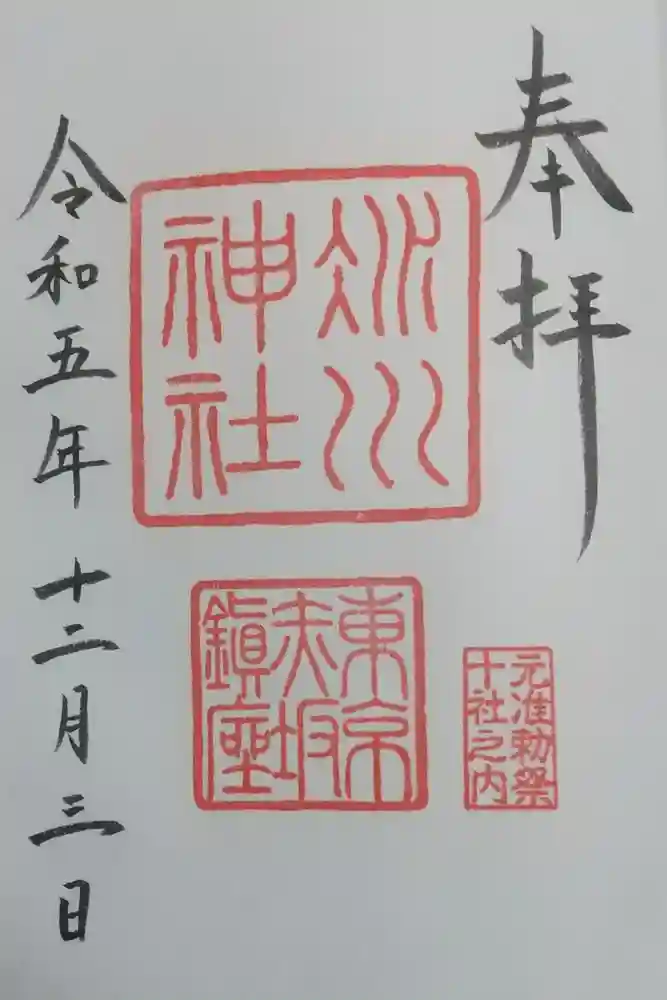 奉拝
氷川
神社
東京
赤坂
鎮座
元准勅祭
十社之内
令和五年十二月三日